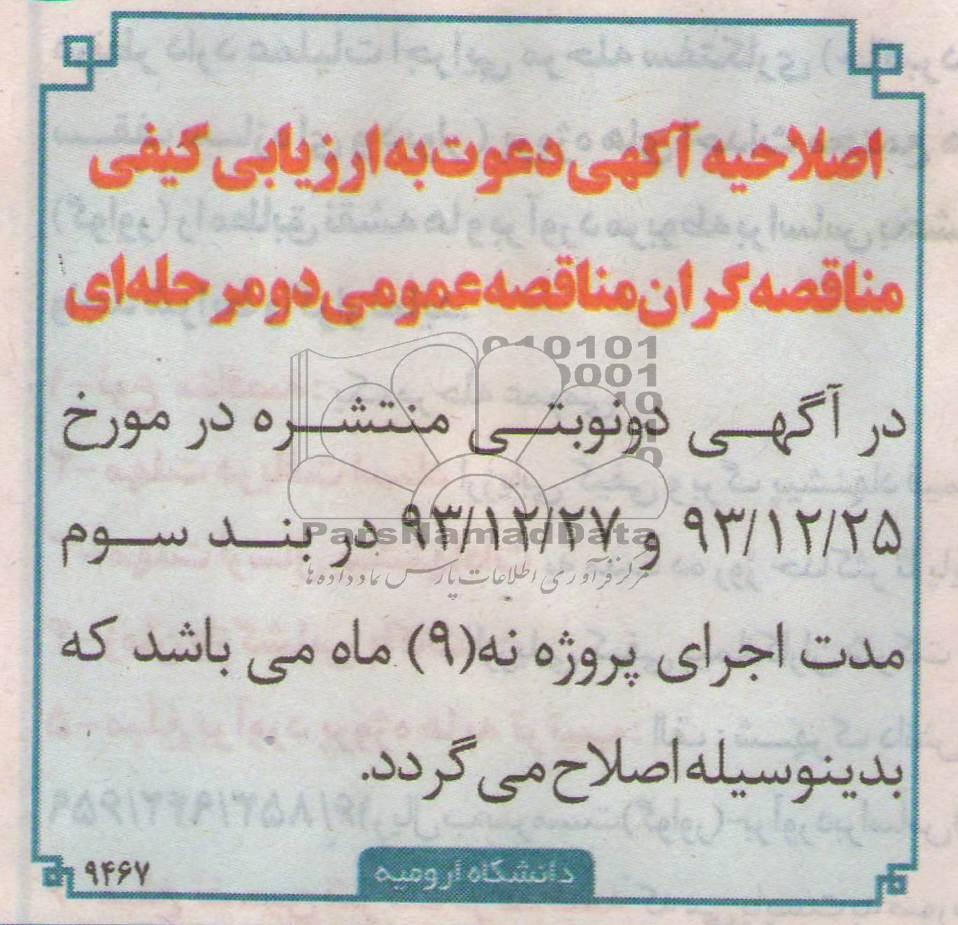 اصلاحیه آگهی دعوت به ارزیابی کیفی
مناقصه گران مناقصه عمومی دو مرحله ای
010101
0001
در آگهی دونوبتی منتشره در مورخ
۹۳/۱۲/۲۵ و ۹۳/۱۲/۲۷ در بند سوم
ParsNamadData
مرکز فرآوری اطلاعات پارس نماد داده ها
مدت اجرای پروژه نه(۹) ماه می باشد که
بدینوسیله اصلاح می گردد.
دانشگاه ارومیه
۹۴۶۷